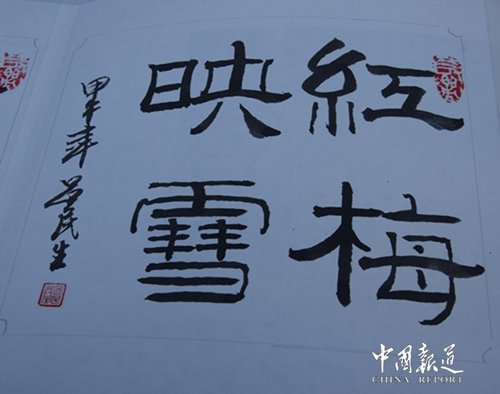 紅梅
映雪
甲午年
民生
中國報道
CHINA REPORT